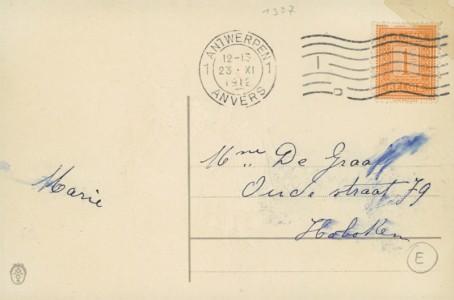 1307
ANTWERPEN
1 1
12-13
23 · XI
1912
ANVERS
1
Mme De Graaf
Oude straat 79
Hoboken
Marie
E